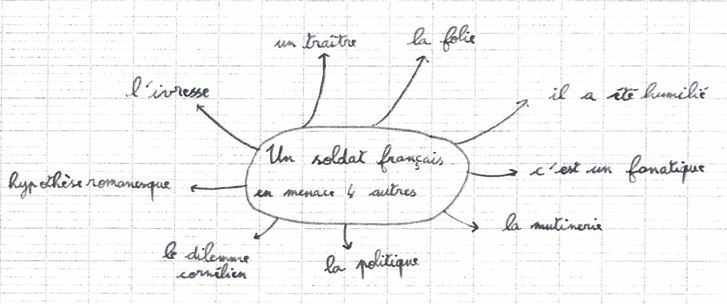 un traître
la folie
l'ivresse
il a été humilié
Un soldat français
en menace 4 autres
c'est un fanatique
hypothèse romanesque
la mutinerie
le dilemme
cornélien
la politique